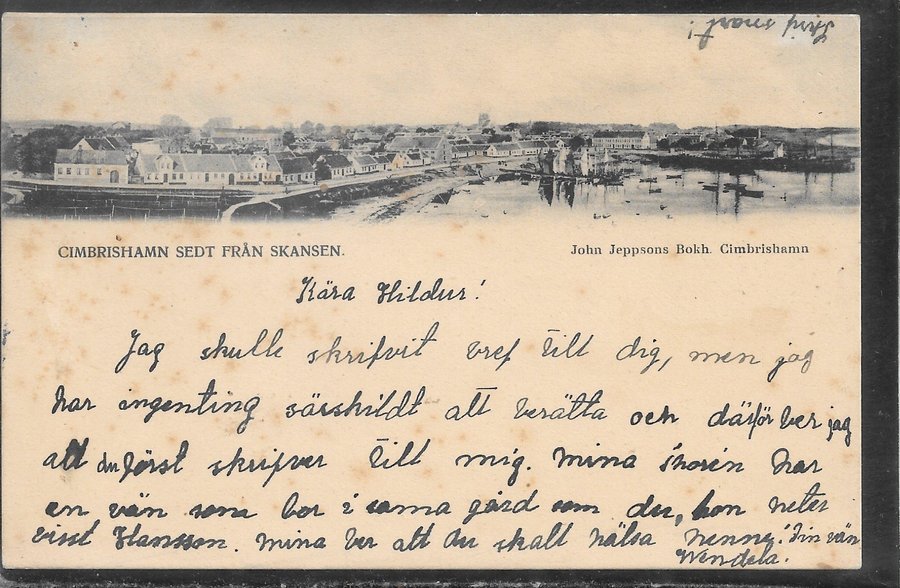 Skrif snart!
CIMBRISHAMN SEDT FRÅN SKANSEN.
John Jeppsons Bokh. Cimbrishamn
Kära Hildur!
Jag skulle skrifvit bref till dig, men jag
har ingenting särskildt att berätta och därför ber jag
att du först skrifver till mig. Mina
har
en vän som bor i sama gård som du, hon heter
visst Hansson. Mina ber att du skall hälsa henne! Din vän
Wendela.